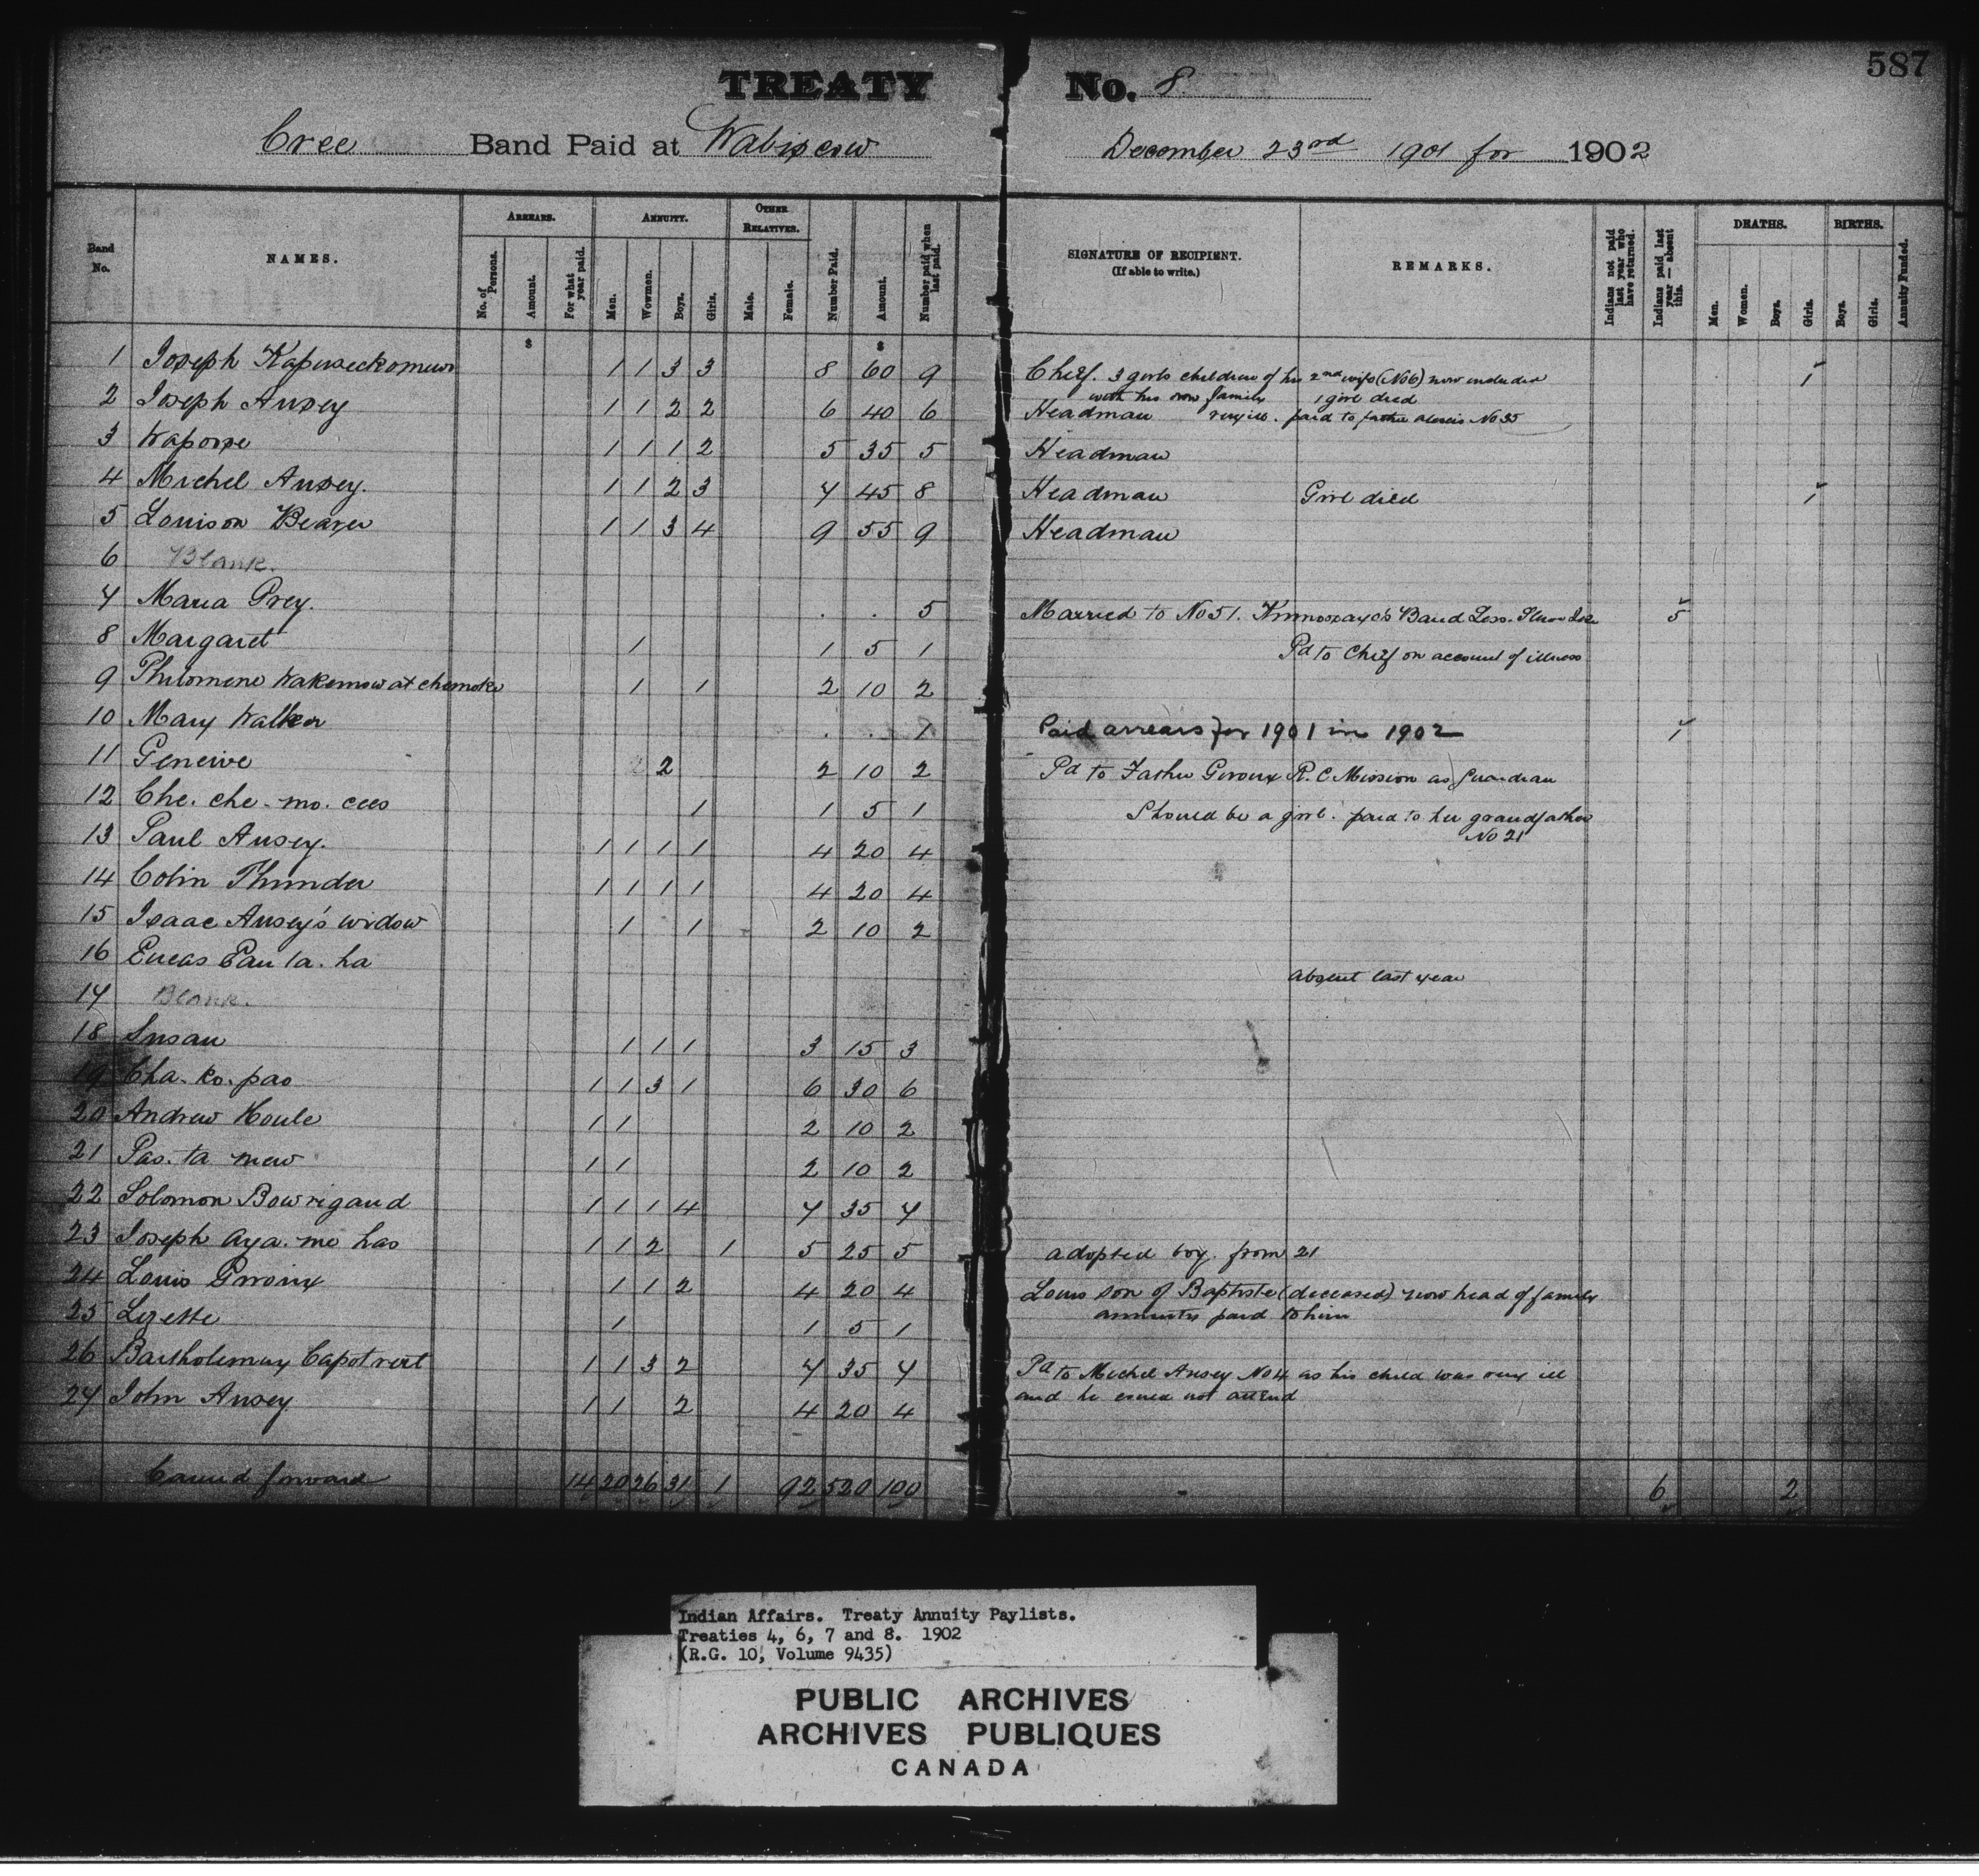 587
TREATY No. 8
Cree Band Paid at Wabiscow December 23rd 1901 for 1902
Band No. NAMES. ARREARS. No. of Persons. Amount. For what year paid. ANNUITY. Men. Wowmen. Boys. Girls. OTHER RELATIVES. Male. Female. Number Paid. Amount. Number paid when last paid. SIGNATURE OF RECIPIENT. (If able to write.) REMARKS. Indians not paid last year who have returned. Indians paid last year—absent this. DEATHS. Men. Women. Boys. Girls. BIRTHS. Boys. Girls. Annuity Funded.
$ $
1 Joseph 1 1 3 3 8 60 9 Chief. 3 girls children of his 2nd wife (No6) now included 1
with his own family 1 girl died
2 Joseph Ausey 1 1 2 2 6 40 6 Headman very ill. paid to father No 35
3 1 1 1 2 5 35 5 Headman
4 Michel Ausey. 1 1 2 3 7 45 8 Headman Girl died 1
5 Louison Beaver 1 1 3 4 9 55 9 Headman
6 Blank.
7 Maria Grey. . . 5 Married to No 51. Band Less. Slave Lake 5
8 Margaret 1 1 5 1 Pd to Chief on account of illness
9 Philomene 1 1 2 10 2
10 Mary Walker . . 1 Paid arrears for 1901 in 1902 1
11 Geneive 2 2 10 2 Pd to Father Giroux R. C Mission as guardian
12 Che. che. mo. cees 1 1 5 1 Should be a girl. paid to her grandfather
No 21
13 Paul Ausey. 1 1 1 1 4 20 4
14 Colin Thunder 1 1 1 1 4 20 4
15 Isaac Ausey's widow 1 1 2 10 2
16 absent last year
17 Blank.
18 Susan 1 1 1 3 15 3
19 Cha. ko. pas 1 1 3 1 6 30 6
20 Andrew Houle 1 1 2 10 2
21 Pas. ta mew 1 1 2 10 2
22 Solomon Bowrigand 1 1 1 4 7 35 7
23 Joseph Aya. mo has 1 1 2 1 5 25 5 adopted boy. from 21
24 Louis Giroux 1 1 2 4 20 4 Louis son of Baptiste (deceased) now head of family
annuities paid to him
25 Lizette 1 1 5 1
26 Bartholemuy Capot vert 1 1 3 2 7 35 7 Pd to Michel Ausey No 4 as his child was very ill
and he could not attend
27 John Ausey 1 1 2 4 20 4
Carried forward 14 20 26 31 1 92 520 100 6 2
Indian Affairs. Treaty Annuity Paylists.
Treaties 4, 6, 7 and 8. 1902
(R.G. 10, Volume 9435)
PUBLIC ARCHIVES
ARCHIVES PUBLIQUES
CANADA